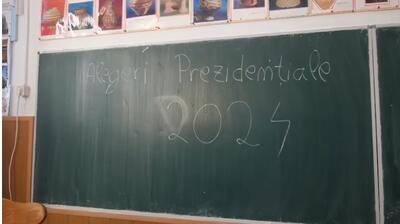 Alegeri Prezidențiale
2024